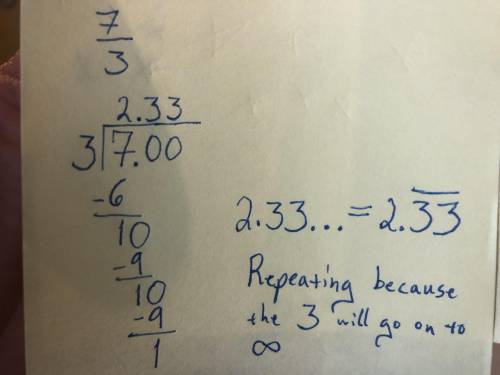 7
3
2.33
3 7.00
-6
10
-9
10
-9
1
2.33... = 2.3̅3̅
Repeating because
the 3 will go on to
∞